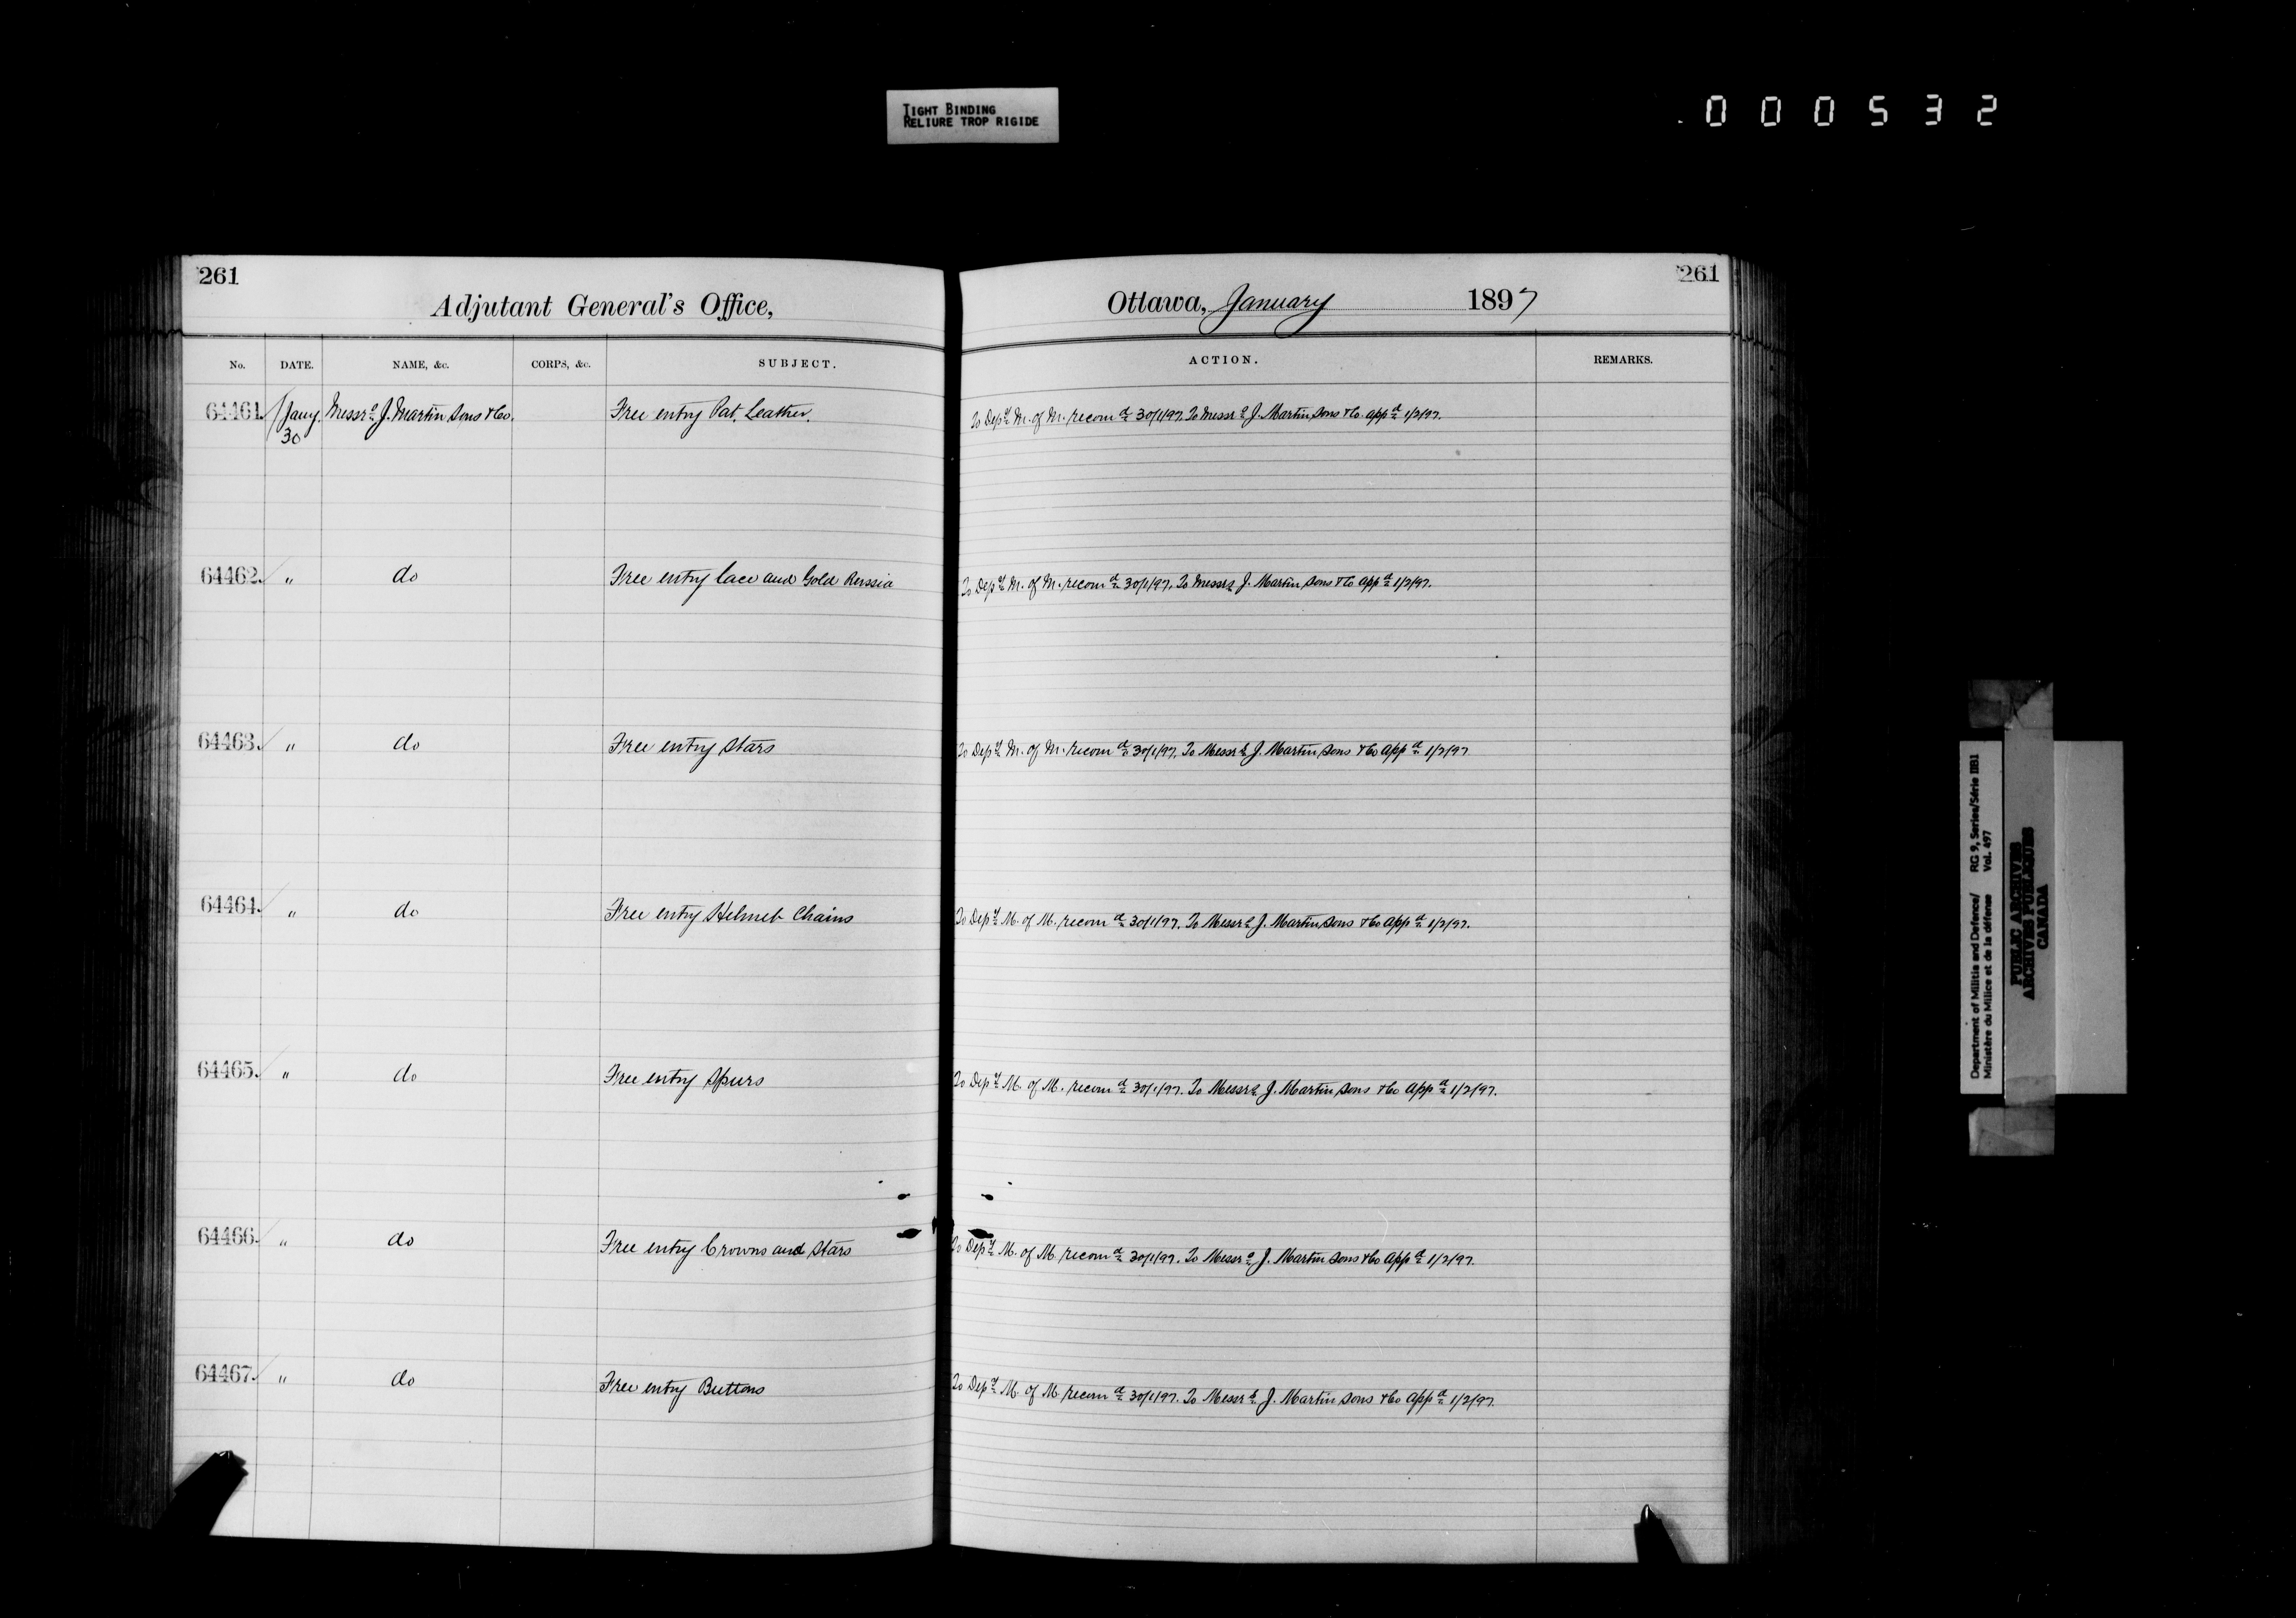 TIGHT BINDING
RELIURE TROP RIGIDE
000532
261
261
Adjutant General's Office,
Ottawa, January 1897
No. DATE. NAME, &c. CORPS, &c. SUBJECT. ACTION. REMARKS.
64461. Jany. 30 Messrs J. Martin Sons & Co. Free entry Pat. Leather. To Depy M. of M. recomd 30/1/97. To Messrs J. Martin Sons & Co. appd 1/2/97.
64462. " do Free entry lace and Gold Russia To Depy M. of M. recomd 30/1/97. To Messrs J. Martin Sons & Co appd 1/2/97.
64463. " do Free entry Stars To Depy M. of M. recomd 30/1/97. To Messrs J. Martin Sons & Co appd 1/2/97
64464. " do Free entry Helmet Chains To Depy M. of M. recomd 30/1/97. To Messrs J. Martin Sons & Co appd 1/2/97.
64465. " do Free entry Spurs To Depy M. of M. recomd 30/1/97. To Messrs J. Martin Sons & Co appd 1/2/97.
64466. " do Free entry Crowns and Stars To Depy M. of M. recomd 30/1/97. To Messrs J. Martin Sons & Co appd 1/2/97.
64467. " do Free entry Buttons To Depy M. of M. recomd 30/1/97. To Messrs J. Martin Sons & Co appd 1/2/97.
Department of Militia and Defence/ RG 9, Series/Série IIB1
Ministère du Milice et de la défense Vol. 497
PUBLIC ARCHIVES
ARCHIVES PUBLIQUES
CANADA